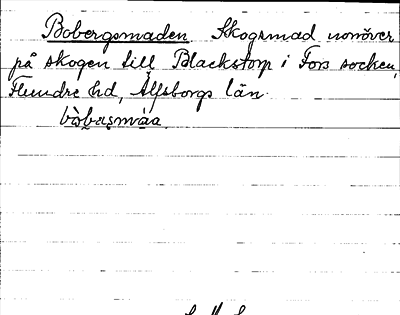 Bobergsmaden Skogsmad norröver
på skogen till Blackstorp i Fors socken,
Flundre hd, Älfsborgs län.